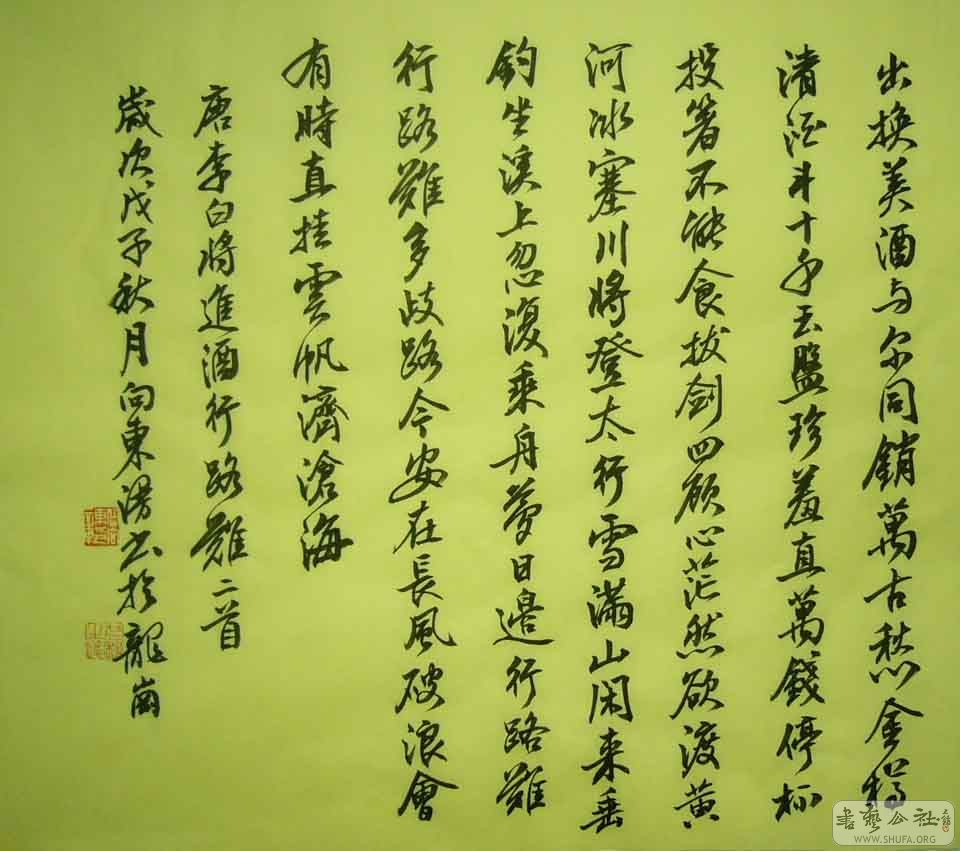 出换美酒与尔同销萬古愁金樽
清酒斗十千玉盤珍羞直萬錢停杯
投箸不能食拔劍四顾心茫然欲渡黄
河冰塞川將登太行雪滿山闲来垂
钓坐溪上忽復乘舟夢日邊行路難
行路難多歧路今安在長風破浪會
有時直挂雲帆濟滄海
唐李白將進酒行路難二首
歲次戊子秋月向東湧书於龍崗
書藝公社
WWW.SHUFA.ORG